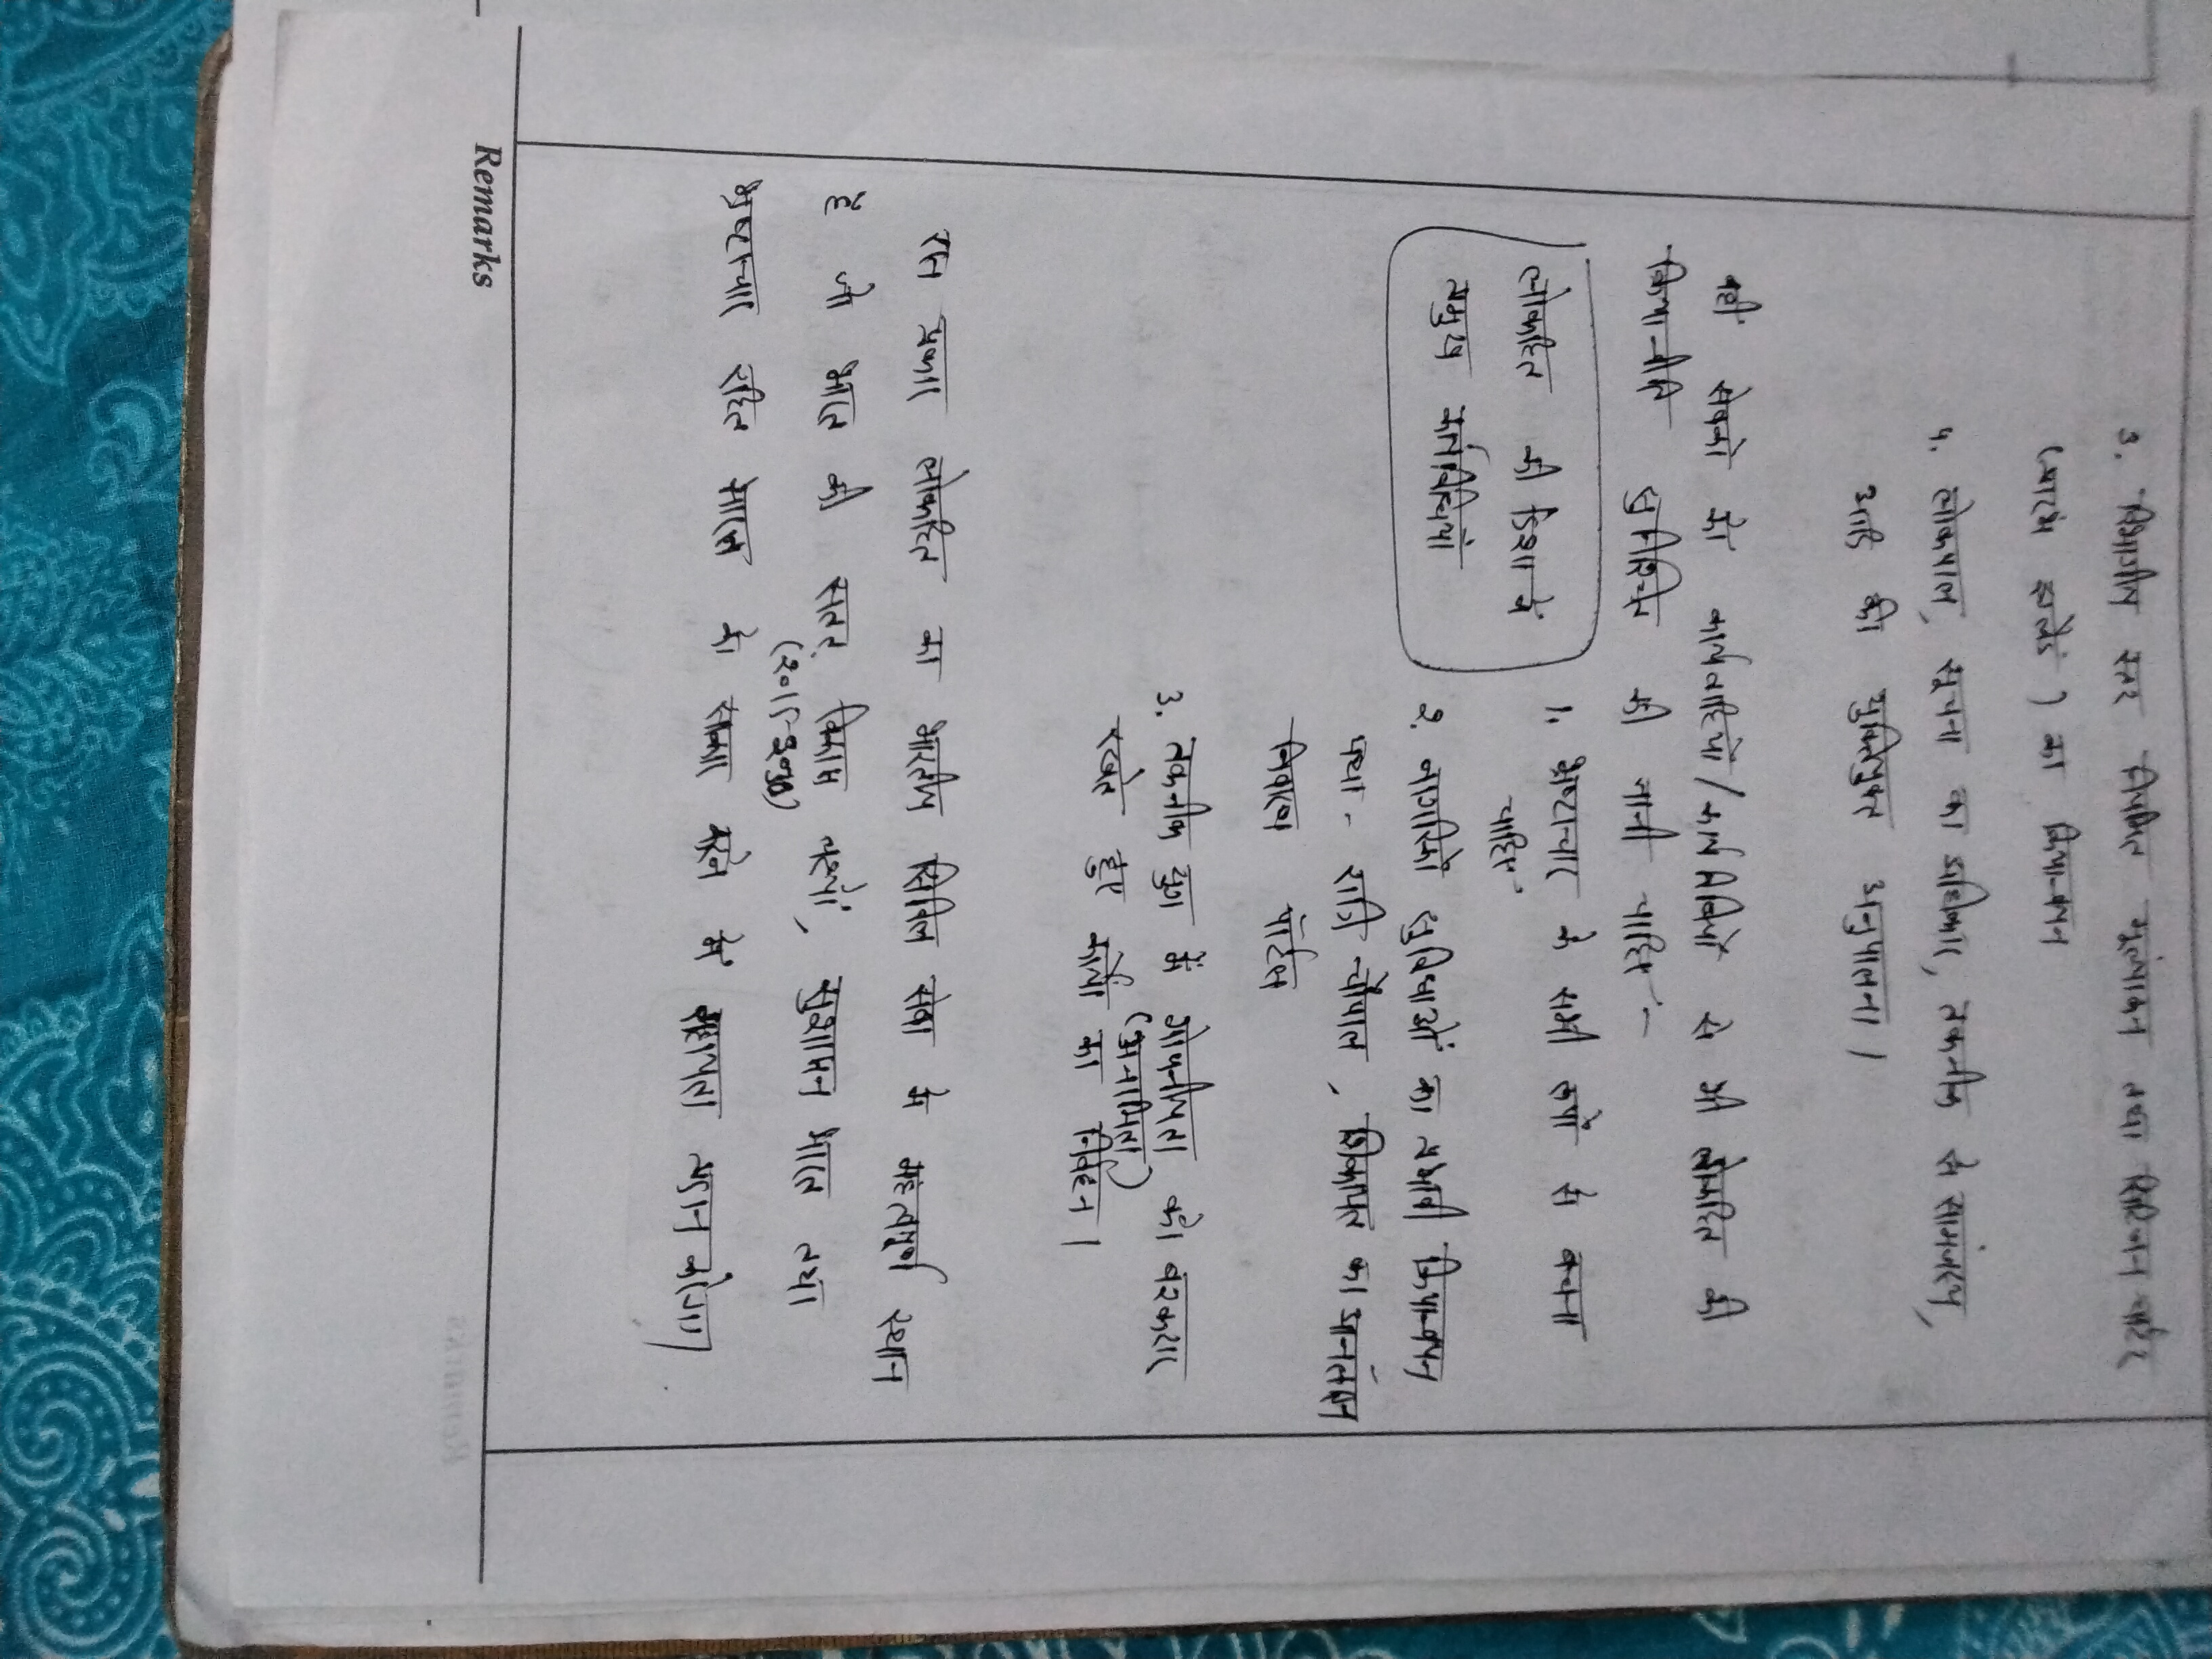 3. विभागीय स्तर नियमित मूल्यांकन तथा सिटिजन चार्टर
(भारतीय ) का क्रियान्वयन
4. लोकपाल, सूचना का अधिकार, तकनीक से सामंजस्य,
आदि की युक्तियुक्त अनुपालना।
वही सेवको को कार्यवाहियो / कार्यविधियों से भी लोकहित की
क्रियान्वीति सुनिश्चित की जानी चाहिए:-
लोकहित की दिशा मे
प्रमुख कार्यविधियां
1. भ्रष्टाचार के सभी रूपों से बचना
चाहिए
2. नागरिको सुविधाओं का प्रभावी क्रियान्वयन
यथा - रात्रि चौपाल, शिकायत का ऑनलाइन
निवारण पोर्टल
3. तकनीक युग में गोपनीयता को बरकरार
(अनामिता)
रखते हुए कार्यो का निर्वहन।
इस प्रकार लोकहित का भारतीय सिविल सेवा मे महत्वपूर्ण स्थान
है जो भारत की सतत् विकास लक्ष्यों, सुशासन भारत तथा
(2015-2030)
भ्रष्टाचार रहित भारत को साकार करने मे सहायता प्रदान करेगा
Remarks